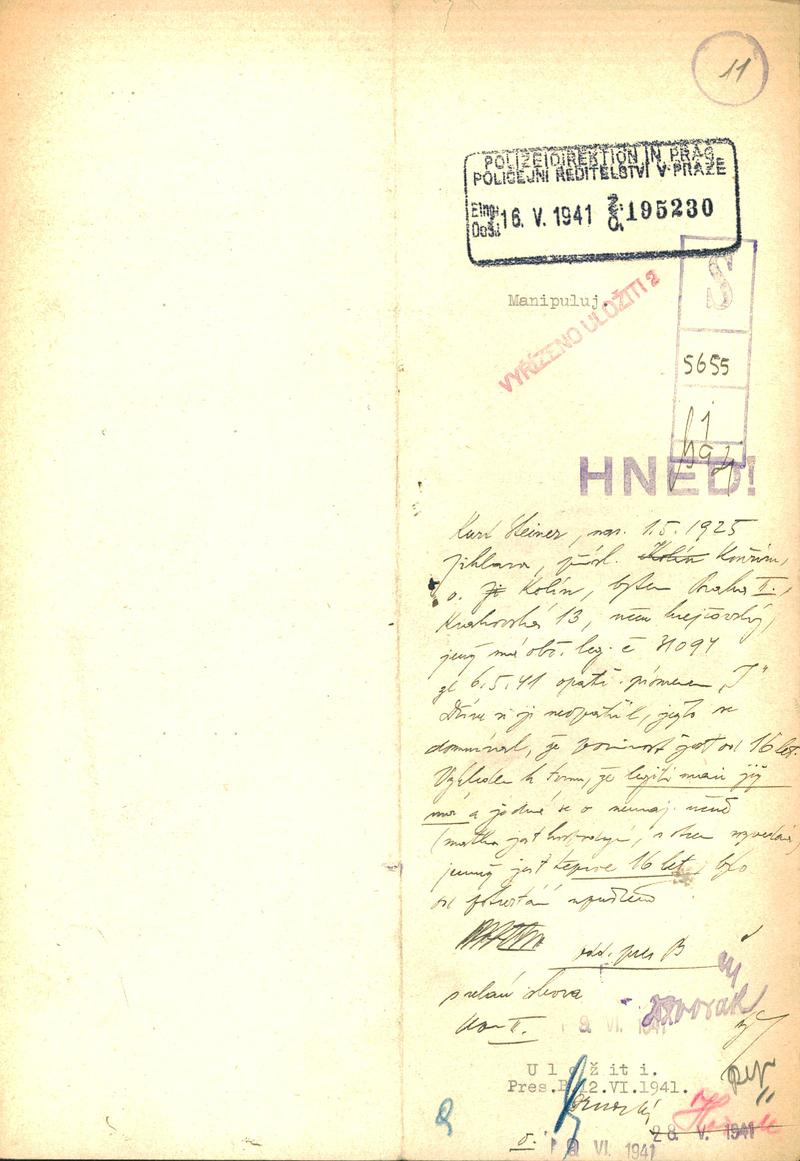 11
POLIZEIDIREKTION IN PRAG
POLICEJNÍ ŘEDITELSTVÍ V PRAZE
Eing.
Došl. 16. V. 1941 Z. Č. 195230
S
Manipuluj.
VYŘÍZENO ULOŽITI 2
5655
HNED!
Kurt Steiner, nar. 1.5.1925
Jihlava, přísl. Kolín Kouřim,
o. Ji Kolín, bytem Praha II.,
Krakovská 13, učeň krejčovský,
jenž má obč. leg. č 31094
ze 6.5.41 opatř. písmenem „J"
Dříve si ji neopatřil, ježto se
domníval, že povinnost jest od 16 let.
Vzhledem k tomu, že legiti maci již
má a jedná se o nemaj. učně
(matka jest, otec
jenž jest teprve 16 let, bylo
od potrestání upuštěno
odd. pres B
Dvořák
II. 9. VI. 1941
Uložiti.
Pres.B 12.VI.1941.
28. V. 1941
9. VI. 1941